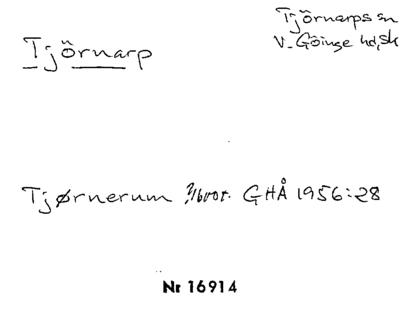 Tjörnarp
Tjörnarps sn
V. Göinge hd, Sk
Tjørnerum GHÅ 1956:28
Nr 16914